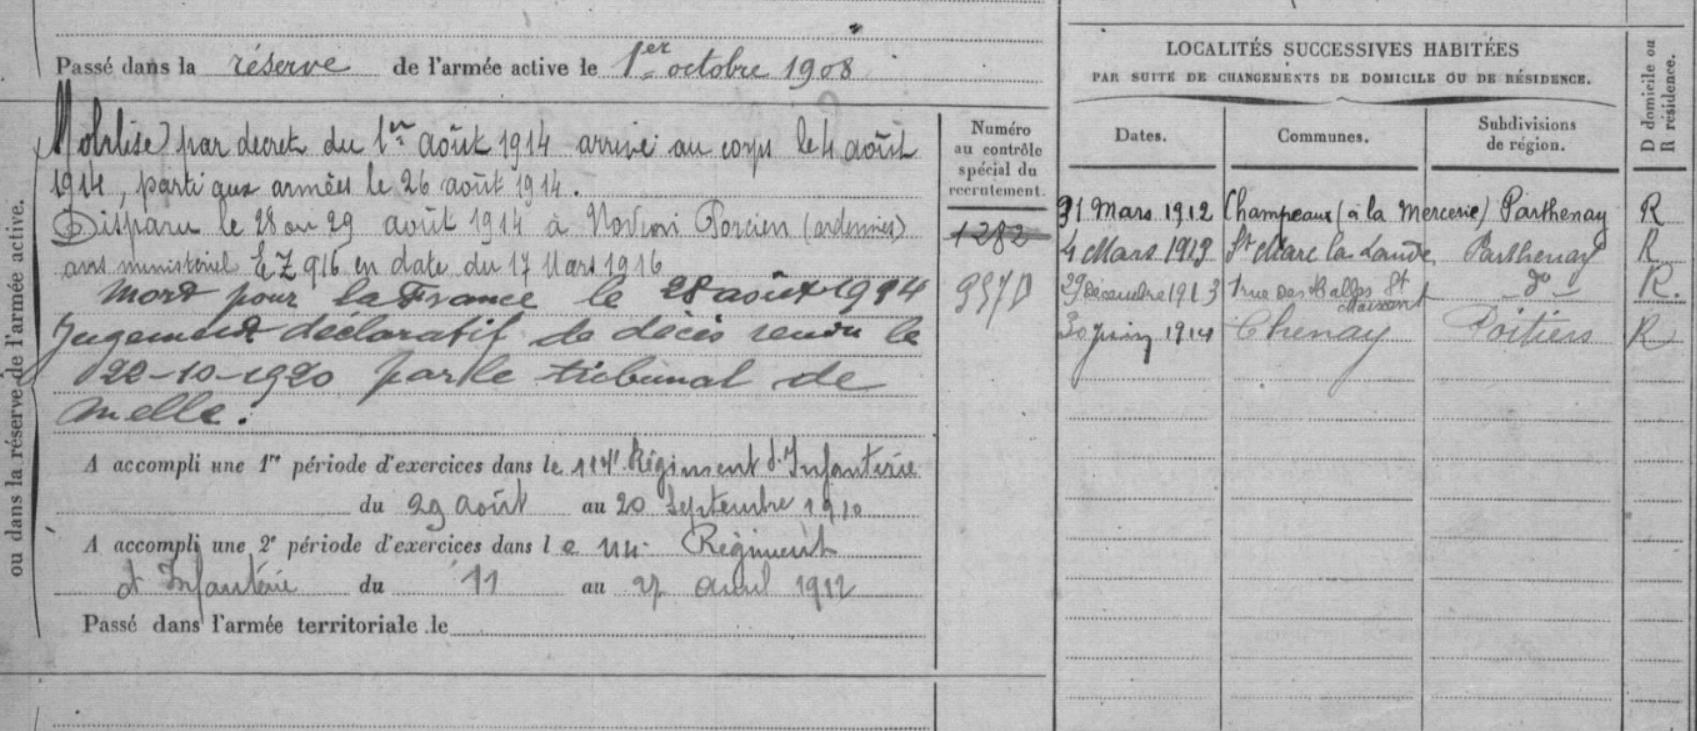 Passé dans la réserve de l'armée active le 1er octobre 1908
Mobilisé par décret du 1er août 1914 arrivé au corps le 4 août
1914, parti aux armées le 26 août 1914.
Disparu le 28 ou 29 août 1914 à Novion Porcien (ardennes)
avis ministériel EZ 916 en date du 17 Mars 1916
Mort pour la France le 28 août 1914
Jugement déclaratif de décès rendu le
22-10-1920 par le tribunal de
Melle.
A accompli une 1re période d'exercices dans le 114e Régiment d'Infanterie
du 29 août au 20 Septembre 1910
A accompli une 2e période d'exercices dans le 114e Régiment
d'Infanterie du 11 au 27 avril 1912
Passé dans l'armée territoriale le
ou dans la réserve de l'armée active.
Numéro
au contrôle
spécial du
recrutement.
1282
LOCALITÉS SUCCESSIVES HABITÉES
PAR SUITE DE CHANGEMENTS DE DOMICILE OU DE RÉSIDENCE.
Dates. Communes. Subdivisions
de région.
D domicile ou
R résidence.
31 Mars 1912 Champeaux (à la Mercerie) Parthenay R
4 Mars 1913 St Marc la Lande Parthenay R
29 décembre 1913 1 rue des Halles St
Maixent do R.
30 Juin 1914 Chenay Poitiers R